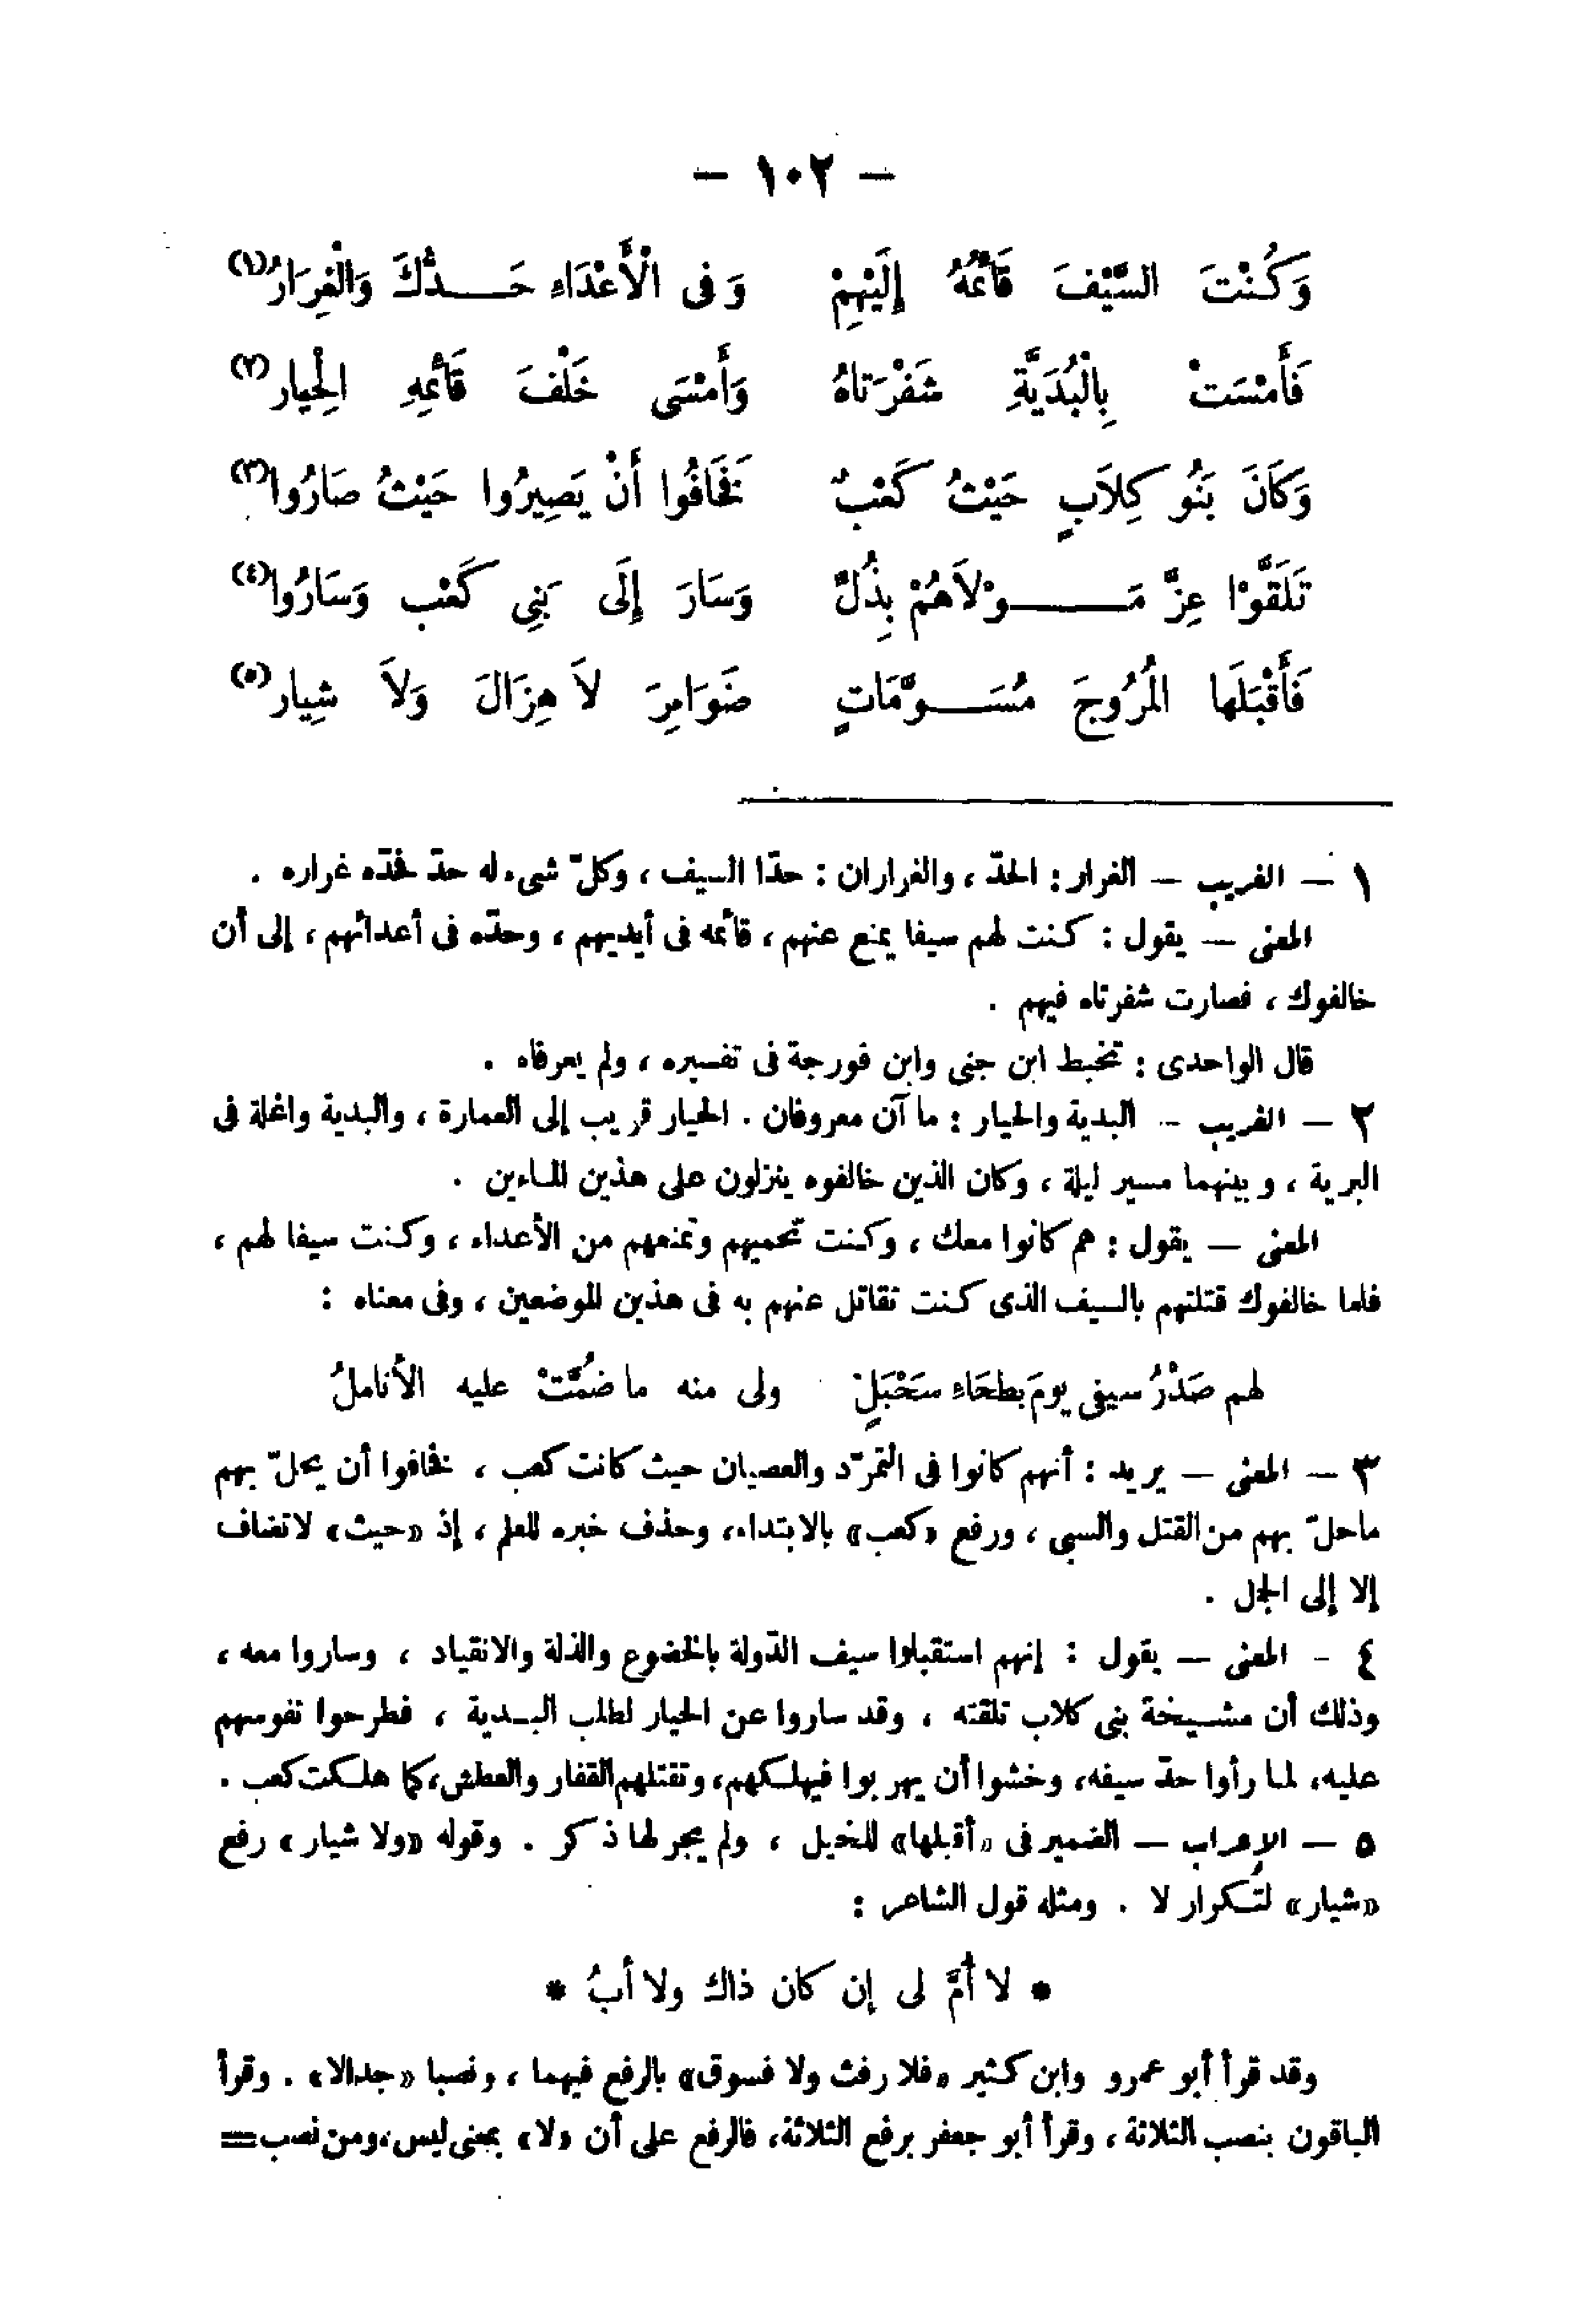 — ١٠٢ —
وَكُنْتَ السَّيْفَ قَائمُهُ إِلَيْهِمْ وَفِى الْأَعْدَاءِ حَـــدُّكَ وَالْغِرَارُ(١)
فَأَمْسَتْ بِالْبُدَيَّةِ شَفْرَتَاهُ وَأَمْسَى خَلْفَ قَائمِهِ الْحِيار(٢)
وَكَانَ بَنُو كِلاَبٍ حَيْثُ كَعْبٌ فَخَافُوا أَنْ يَصِيرُوا حَيْثُ صَارُوا(٣)
تَلَقَّوْا عِزَّ مَـــوْلاَهُمْ بِذُلٍّ وَسَارَ إِلَى بَنِى كَعْب وَسَارُوا(٤)
فَأَقْبَلَها المُرُوجَ مُسَـــوَّمَاتٍ ضَوَامِرَ لاَ هِزَالَ وَلاَ شِيار(٥)
١ — الغريب — الغرار: الحدّ ، والغراران : حدّا السيف ، وكلّ شىء له حدّ فحدّه غراره .
المعنى — يقول : كنت لهم سيفا يمنع عنهم ، قائمه فى أيديهم ، وحدّه فى أعدائهم ، إلى أن
خالفوك ، فصارت شفرتاه فيهم .
قال الواحدى : تخبط ابن جنى وابن فورجة فى تفسيره ، ولم يعرفاه .
٢ — الغريب — البدية والحيار : ما آن معروفان . الحيار قريب إلى العمارة ، والبدية واغلة فى
البرية ، وبينهما مسير ليلة ، وكان الذين خالفوه ينزلون على هذين المـاءين .
المعنى — يقول : هم كانوا معك ، وكنت تحميهم وتمنعهم من الأعداء ، وكنت سيفا لهم ،
فلما خالفوك قتلتهم بالسيف الذى كنت تقاتل عنهم به فى هذين الموضعين ، وفى معناه :
لهم صَدْرُ سيفى يومَ بطحَاءِ سَحْبَلٍ ولى منه ما ضُمَّتْ عليه الأناملُ
٣ — المعنى — يريد : أنهم كانوا فى التمرّد والعصيان حيث كانت كعب ، فخافوا أن يحلّ بهم
ماحلّ بهم من القتل والسبى ، ورفع «كعب» بالابتداء، وحذف خبره للعلم ، إذ «حيث» لاتضاف
إلا إلى الجمل .
٤ — المعنى — يقول : إنهم استقبلوا سيف الدّولة بالخضوع والذلة والانقياد ، وساروا معه ،
وذلك أن مشـيخة بنى كلاب تلقته ، وقد ساروا عن الحيار لطلب البـدية ، فطرحوا نفوسهم
عليه، لمـا رأوا حدّ سيفه، وخشوا أن يهربوا فيهلكهم، وتقتلهم القفار والعطش، كما هلـكت كعب .
٥ — الإعراب — الضمير فى «أقبلها» للخيل ، ولم يجر لها ذكر . وقوله «ولا شيار» رفع
«شيار» لتُـكرار لا . ومثله قول الشاعر :
* لا أُمَّ لى إن كان ذاك ولا أبُ *
وقد قرأ أبو عمرو وابن كثير «فلا رفث ولا فسوق» بالرفع فيهما ، ونصبا «جدالا» . وقرأ
الباقون بنصب الثلاثة ، وقرأ أبو جعفر برفع الثلاثة، فالرفع على أن «لا» بمعنى ليس، ومن نصب =